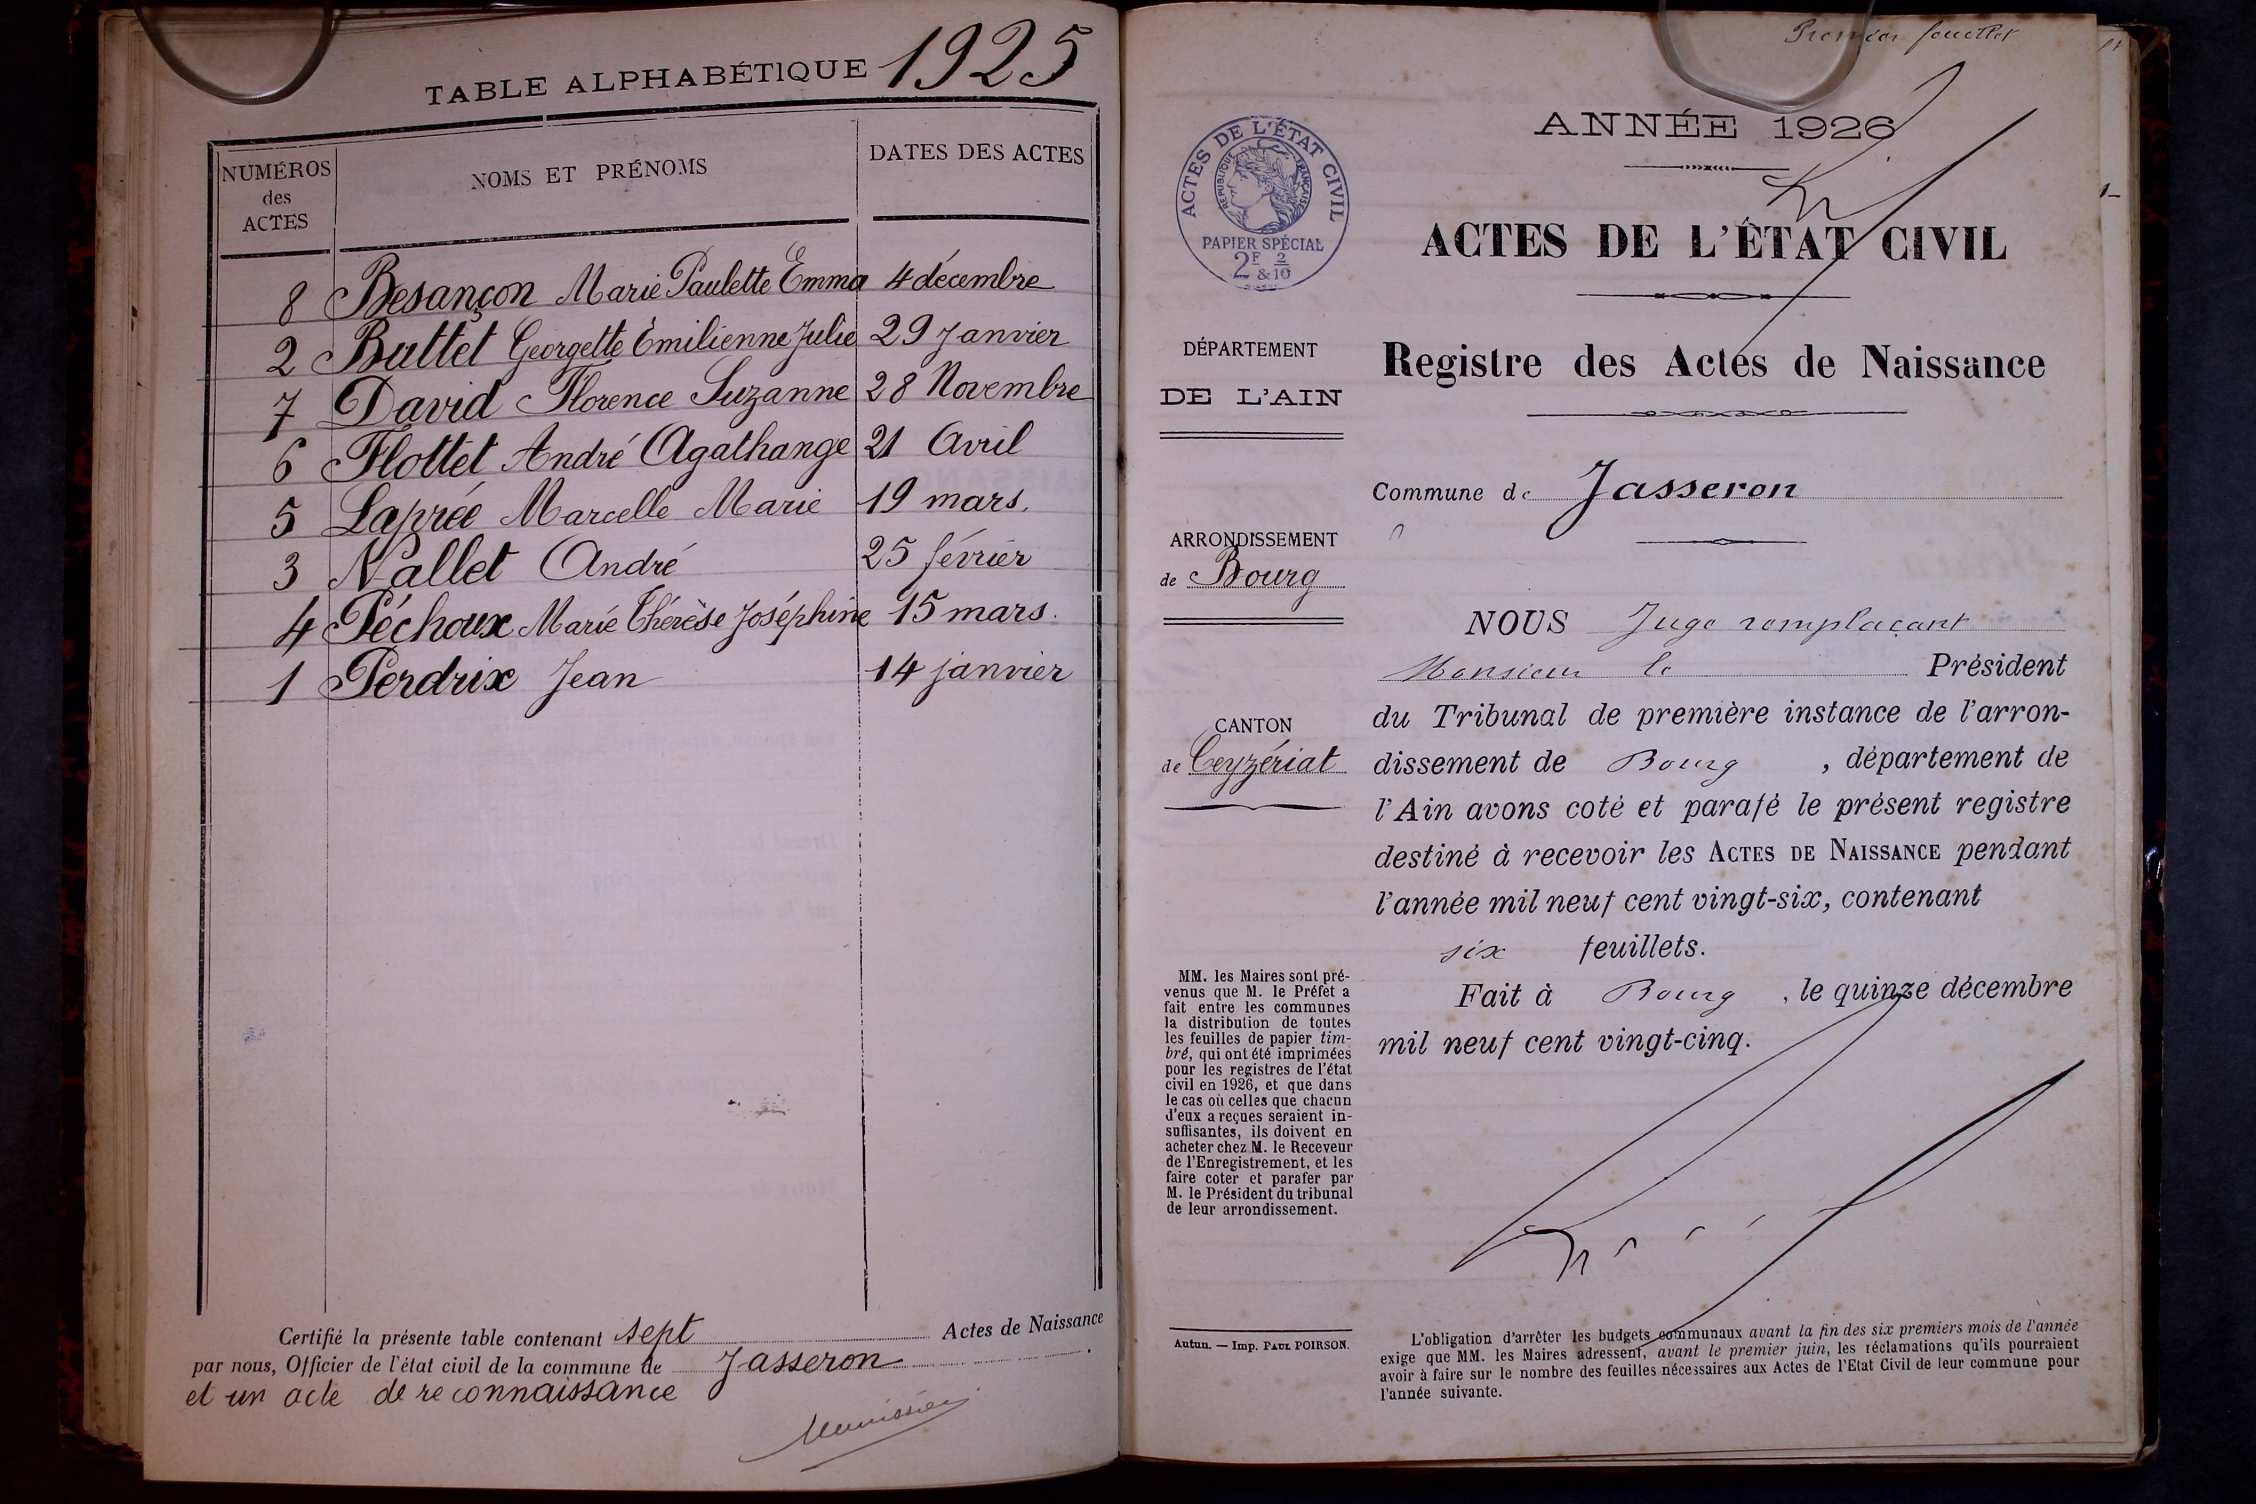 TABLE ALPHABÉTIQUE 1925
NUMÉROS
des
ACTES
NOMS ET PRÉNOMS
DATES DES ACTES
8 Besançon Marie Paulette Emma 4 décembre
2 Buttet Georgette Émilienne Julie 29 Janvier
7 David Florence Suzanne 28 Novembre
6 Flottet André Agathange 21 Avril
5 Laprée Marcelle Marie 19 mars.
3 Nallet André 25 février
4 Péchoux Marie Thérèse Joséphine 15 mars.
1 Perdrix Jean 14 janvier
Certifié la présente table contenant sept Actes de Naissance
par nous, Officier de l'état civil de la commune de Jasseron.
et un acte de reconnaissance
Premier feuillet
ACTES DE L'ÉTAT CIVIL
RÉPUBLIQUE FRANÇAISE
PAPIER SPÉCIAL
2F & 2/10
DÉPARTEMENT
DE L'AIN
ARRONDISSEMENT
de Bourg
CANTON
de Ceyzériat
MM. les Maires sont pré-
venus que M. le Préfet a
fait entre les communes
la distribution de toutes
les feuilles de papier tim-
bré, qui ont été imprimées
pour les registres de l'état
civil en 1926, et que dans
le cas où celles que chacun
d'eux a reçues seraient in-
suffisantes, ils doivent en
acheter chez M. le Receveur
de l'Enregistrement, et les
faire coter et parafer par
M. le Président du tribunal
de leur arrondissement.
Autun. — Imp. PAUL POIRSON.
ANNÉE 1926
ACTES DE L'ÉTAT CIVIL
Registre des Actes de Naissance
Commune de Jasseron
NOUS Juge remplaçant
Monsieur le Président
du Tribunal de première instance de l'arron-
dissement de Bourg, département de
l'Ain avons coté et parafé le présent registre
destiné à recevoir les ACTES DE NAISSANCE pendant
l'année mil neuf cent vingt-six, contenant
six feuillets.
Fait à Bourg, le quinze décembre
mil neuf cent vingt-cinq.
L'obligation d'arrêter les budgets communaux avant la fin des six premiers mois de l'année
exige que MM. les Maires adressent, avant le premier juin, les réclamations qu'ils pourraient
avoir à faire sur le nombre des feuilles nécessaires aux Actes de l'Etat Civil de leur commune pour
l'année suivante.